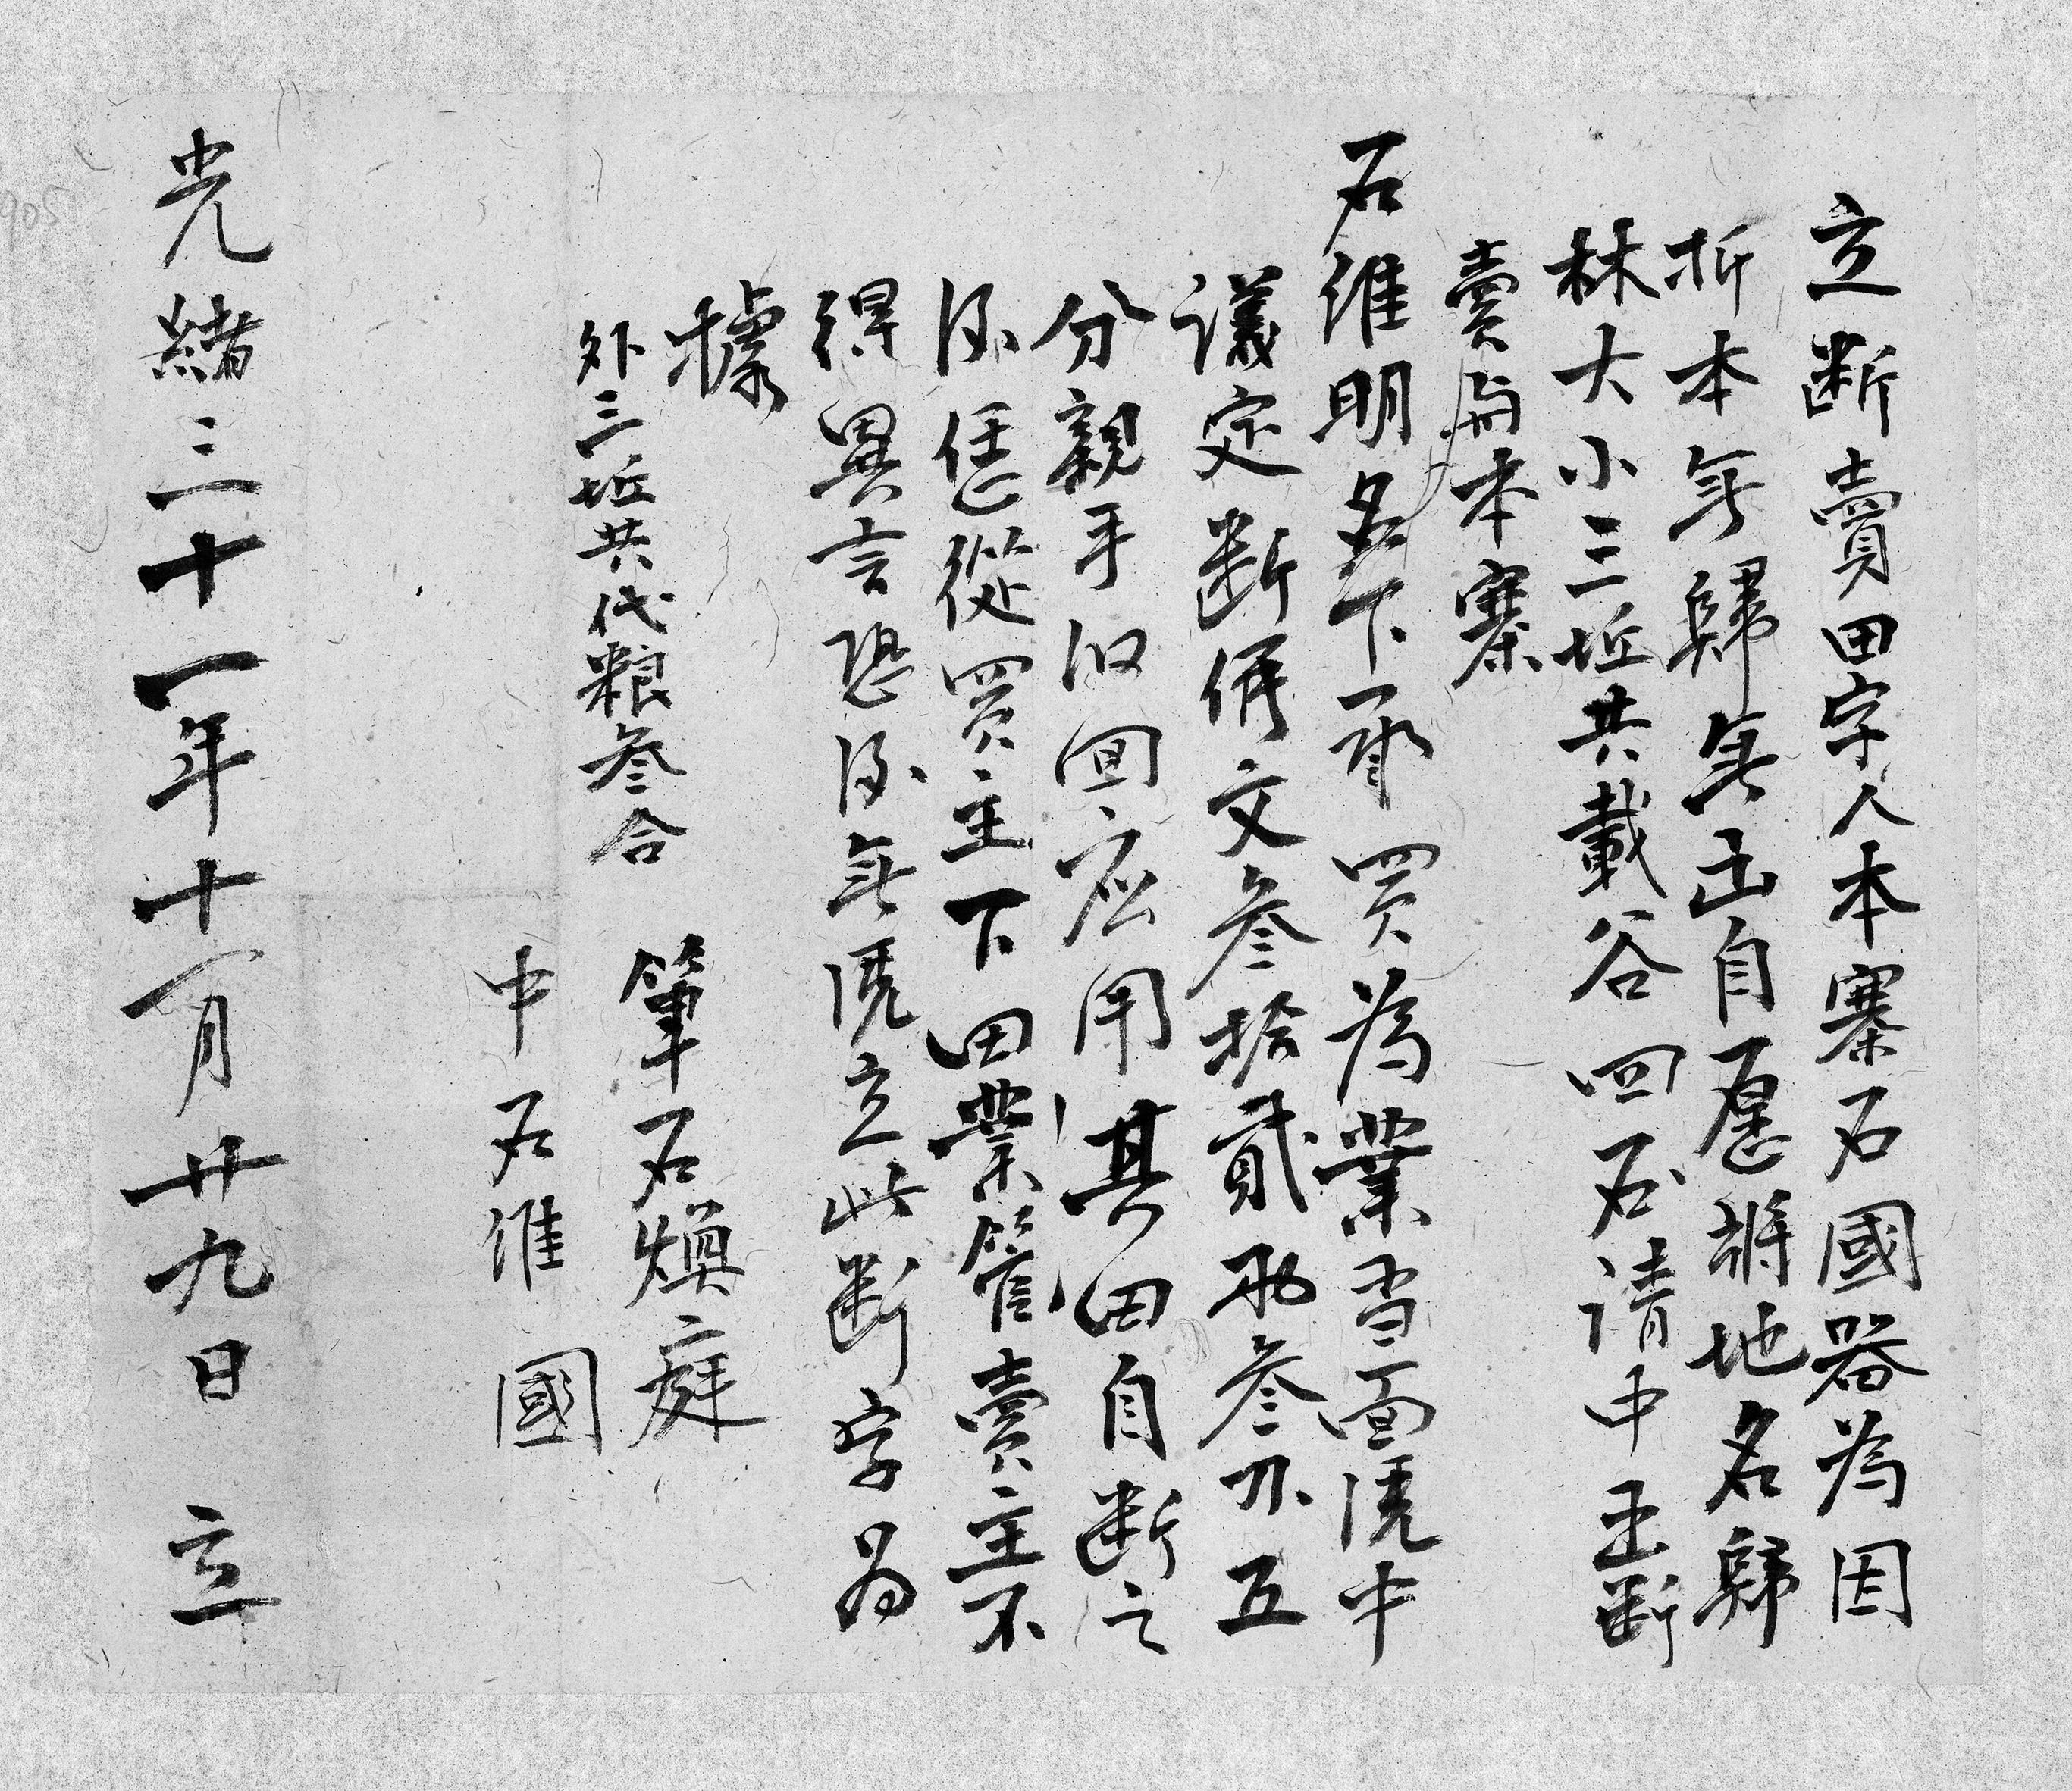 立断賣田字人本寨石國器為因
折本無歸無出自愿將地名歸
林大小三坵共載谷四石请中正断
賣與本寨
石维明名下承買為業当面凭中
議定断價文叁拾貳両叁分五
分親手收回应用其田自断之
後恁從買主下田業管賣主不
得異言恐後無凴立此断字為
據
外三坵共代粮叁合
筆石焕庭
中石维國
光緒三十一年十一月廿九日立